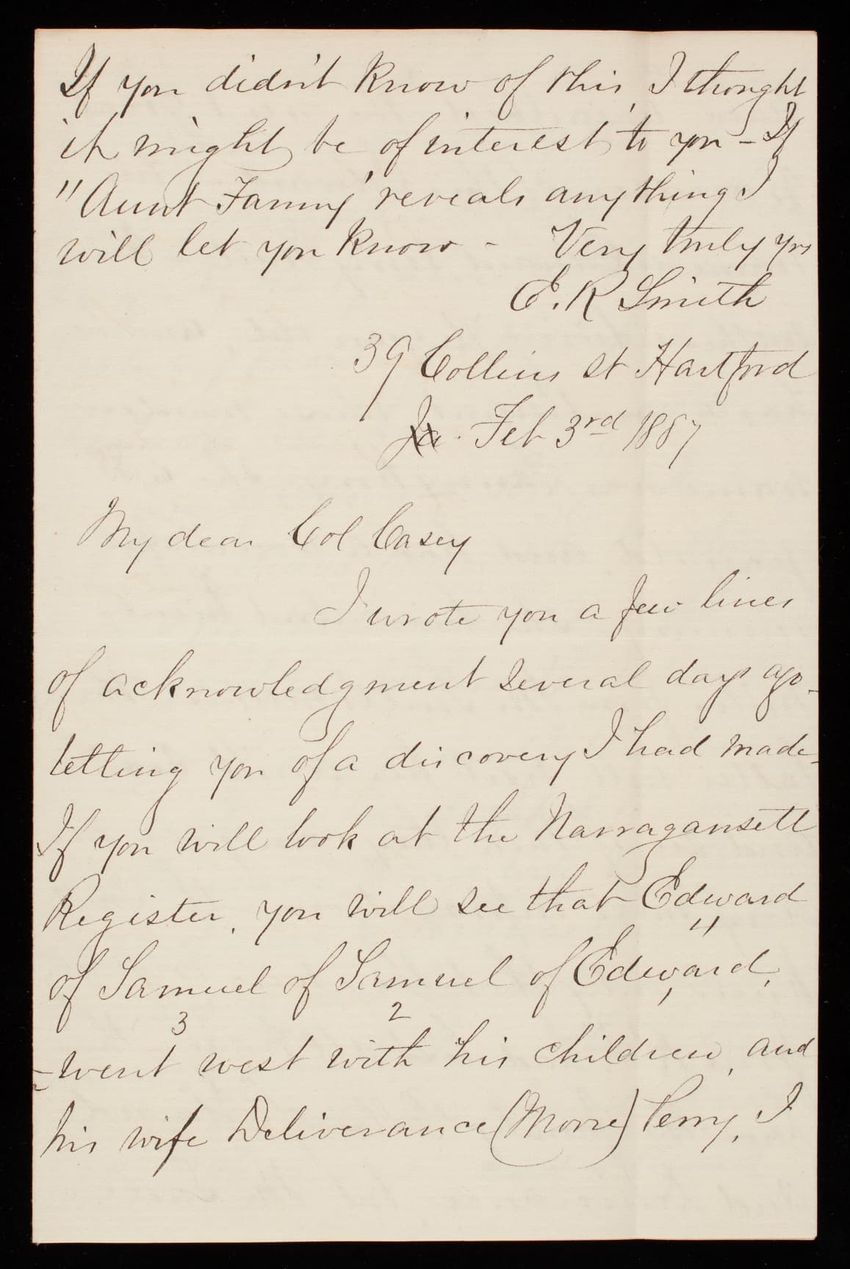 If you didn't know of this, I thought
it might be of interest to you - If
"Aunt Fanny" reveals anything I
will let you know - Very truly yrs
E. R Smith
39 Collins st Hartford
Feb 3rd 1887
My dear Col Casey
I wrote you a few lines
of acknowledgment several days ago -
telling you of a discovery I had made -
If you will look at the Narragansett
Register, you will see that Edward
of Samuel of Samuel of Edward,
3 2
- went west with his children, and
his wife Deliverance (Morre) Perry, I